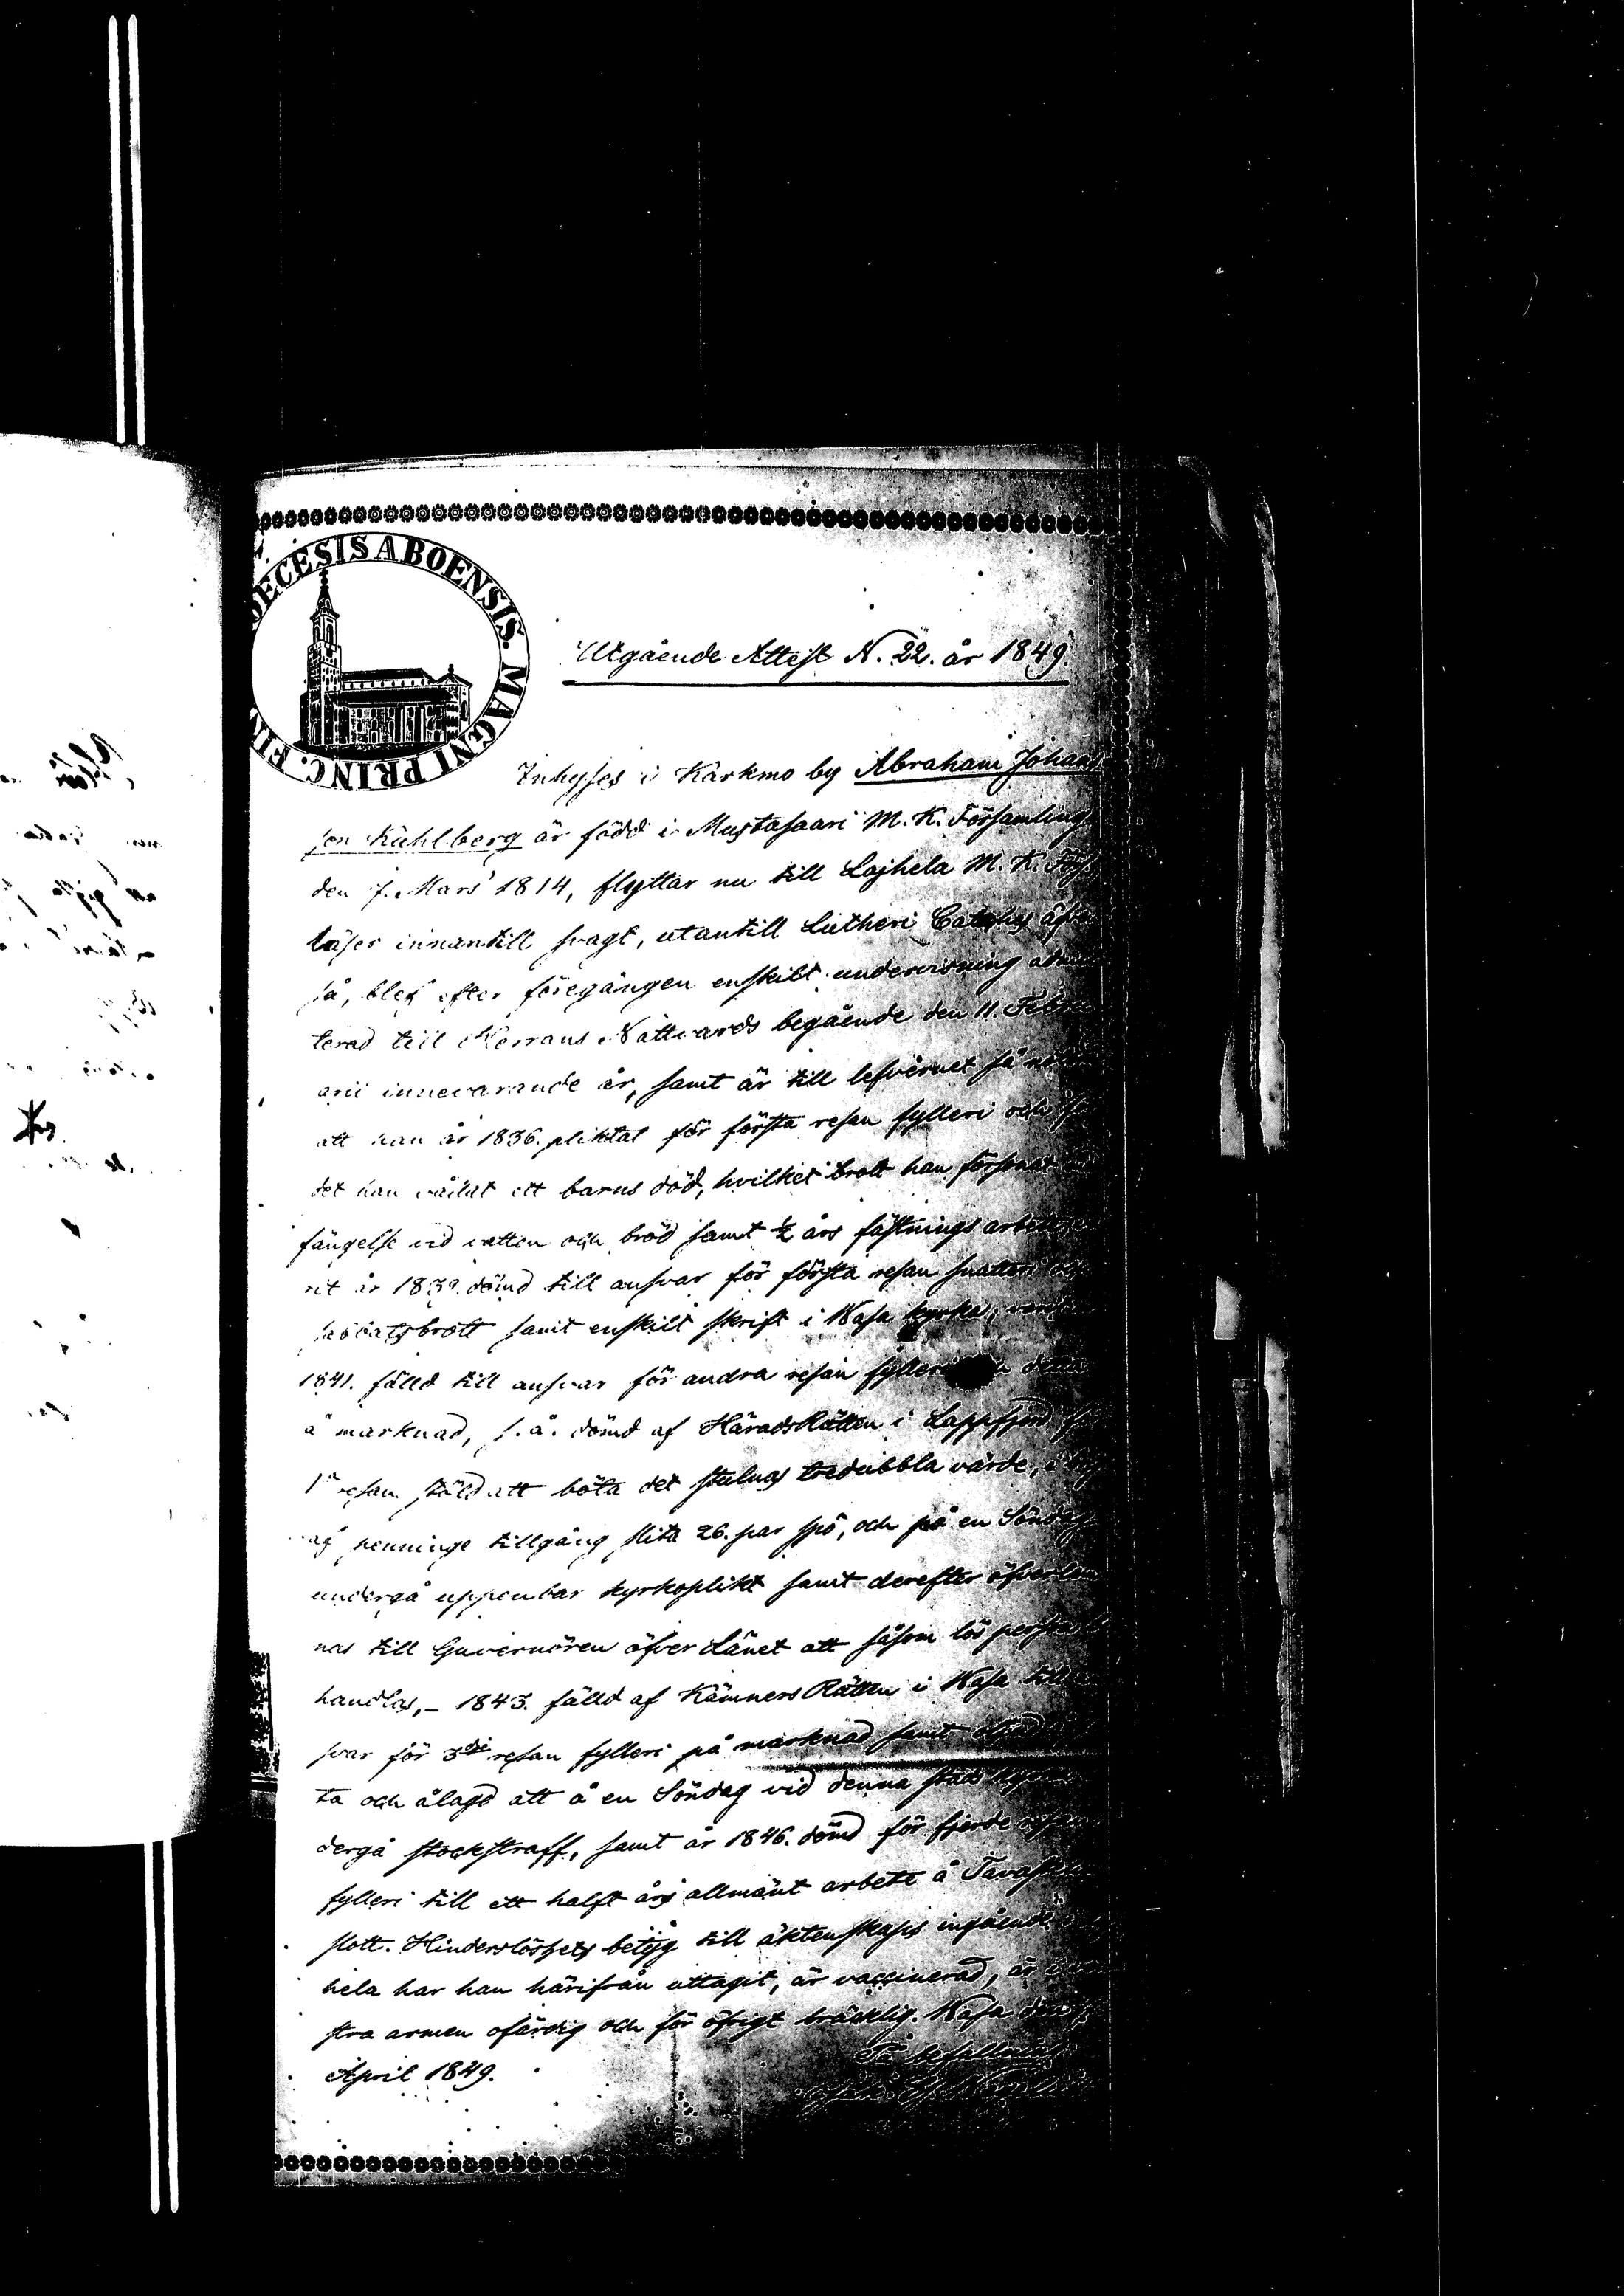 DECESIS ABOENSIS. MAGNI PRINC. FIN
Utgående Attest N. 22. år 1849.
Inhyses i Karkmo by Abraham Johans
son Kuhlberg är född i Mustasaari M. K. Församling
den 7. Mars 1814, flyttar nu till Lajhela M. K. Förs
läser innantill svagt, utantill Lutheri
så, blef efter föregången enskilt undervisning
terad till Herrans Nattvards begående den 11. Febru
arii innevarande år, samt är till lefvernet så
att han år 1836. pliktat för första resan fylleri och
det han vållat ett barns död, hvilket brott han försonat
fängelse vid vatten och bröd samt ½ års fästnings arbete
rit år 1839. dömd till ansvar för första resan snatteri
sabbatsbrott samt enskilt skrift i Wasa kyrka,
1841. fälld till ansvar för andra resan fylleri
å marknad, s. å. dömd af HäradsRätten i Lappfjerd
1a resan stöld att böta det stulnas tredubbla värde, i
af penninge tillgång slita 26. par spö, och på en Söndag
undergå uppenbar kyrkoplikt samt derefter öfverlem
nas till Guvernören öfver Länet att såsom lös person
handlas,- 1843. fälld af KämnersRätten i Wasa till
svar för 3dje resan fylleri på marknad samt
ta och ålagd att å en Söndag vid denna stads
dergå stockstraff, samt år 1846. dömd för fjerde resan
fylleri till ett halft års allmänt arbete å Tavaste
slott. Hinderslöshets betyg till äktenskaps ingående
hela har han härifrån uttagit, är vaccinerad, är
stra armen ofärdig och för öfrigt bräcklig. Wasa den
April 1849.